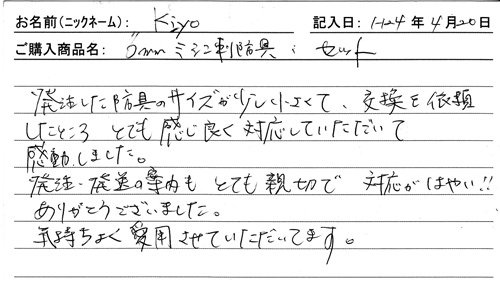 お名前(ニックネーム): Kiyo 記入日: H24 年 4 月 20 日
ご購入商品名: 5mm ミシン刺防具 セット
発注した防具のサイズが少し小さくて、交換を依頼
したところ とても感じ良く対応していただいて
感動しました。
発注・発送の案内も とても親切で 対応がはやい!!
ありがとうございました。
気持ちよく愛用させていただいてます。